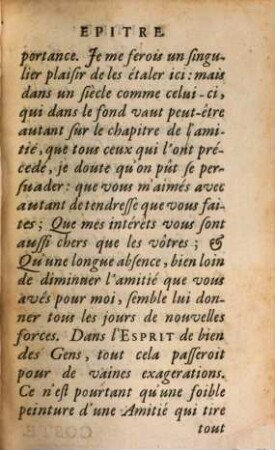 EPITRE.
portance. Je me ferois un singu-
lier plaisir de les étaler ici: mais
dans un siècle comme celui-ci,
qui dans le fond vaut peut-être
autant sur le chapitre de l'ami-
tié, que tous ceux qui l'ont pré-
cedé, je doute qu'on pût se per-
suader: que vous m'aimés avec
autant de tendresse que vous fai-
tes; Que mes intérêts vous sont
aussi chers que les vôtres; &
Qu'une longue absence, bien loin
de diminuer l'amitié que vous
avés pour moi, semble lui don-
ner tous les jours de nouvelles
forces. Dans l'ESPRIT de bien
des Gens, tout cela passeroit
pour de vaines exagerations.
Ce n'est pourtant qu'une foible
peinture d'une Amitié qui tire
tout